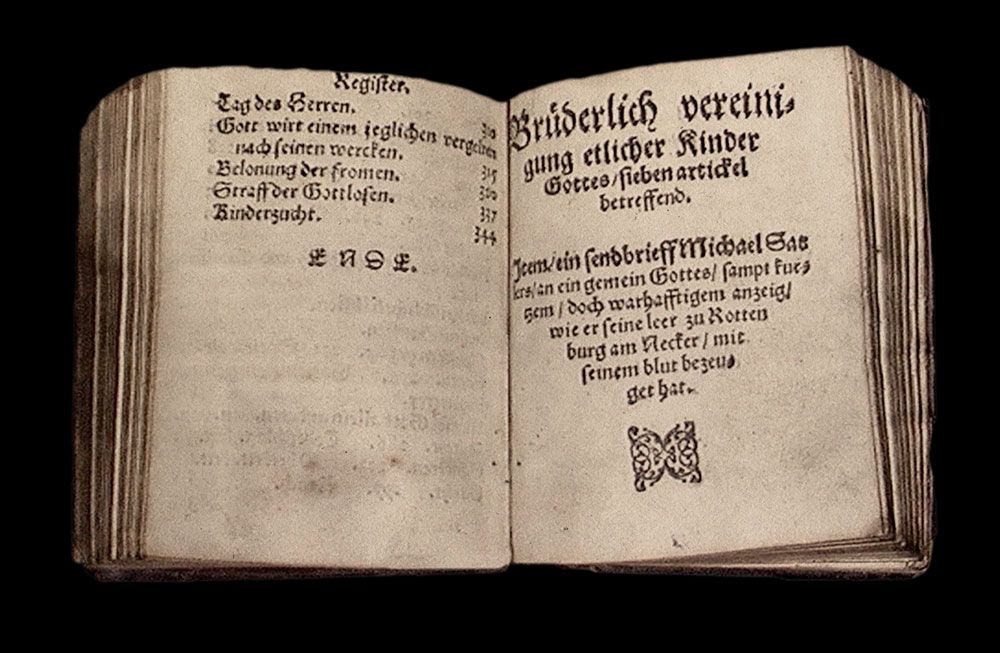 Register.
Tag des Herren.
Gott wirt einem jeglichen vergelten
nach seinen wercken. 315
Belonung der fromen. 320
Straff der Gottlosen. 337
Kinderzucht. 344
ENDE.
Brüderlich vereini⸗
gung etlicher Kinder
Gottes/sieben artickel
betreffend.
Jtem/ein sendbrieff Michael Sat
lers/an ein gemein Gottes/ sampt kur⸗
tzem / doch warhafftigem anzeig/
wie er seine leer zu Rotten
burg am Necker / mit
seinem blut bezeu⸗
get hat.